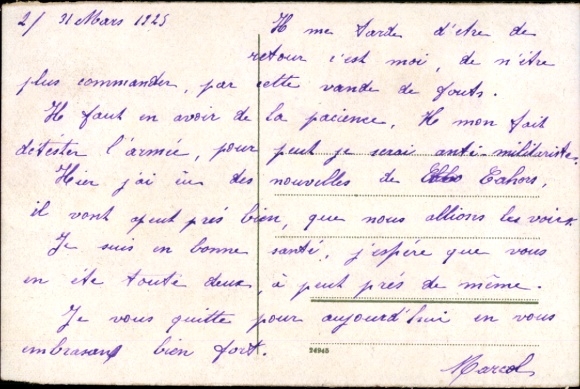 2/ 31 Mars 1925
Il me tarde d'être de
retour c'est moi, de n'être
plus commander, par cette vande de fouts.
Il faut en avoir de la pacience, Il mon fait
détester l'armée, pour peut je serai anti-militariste.
Hier j'ai eu des nouvelles de Cahors,
il vont apeut prés bien, que nous allions les voir.
Je suis en bonne santé, j'espére que vous
en ête touté deux, à peut prés de même.
Je vous quitte pour aujourd'hui en vous
embrasant bien fort.
24945
Marcel